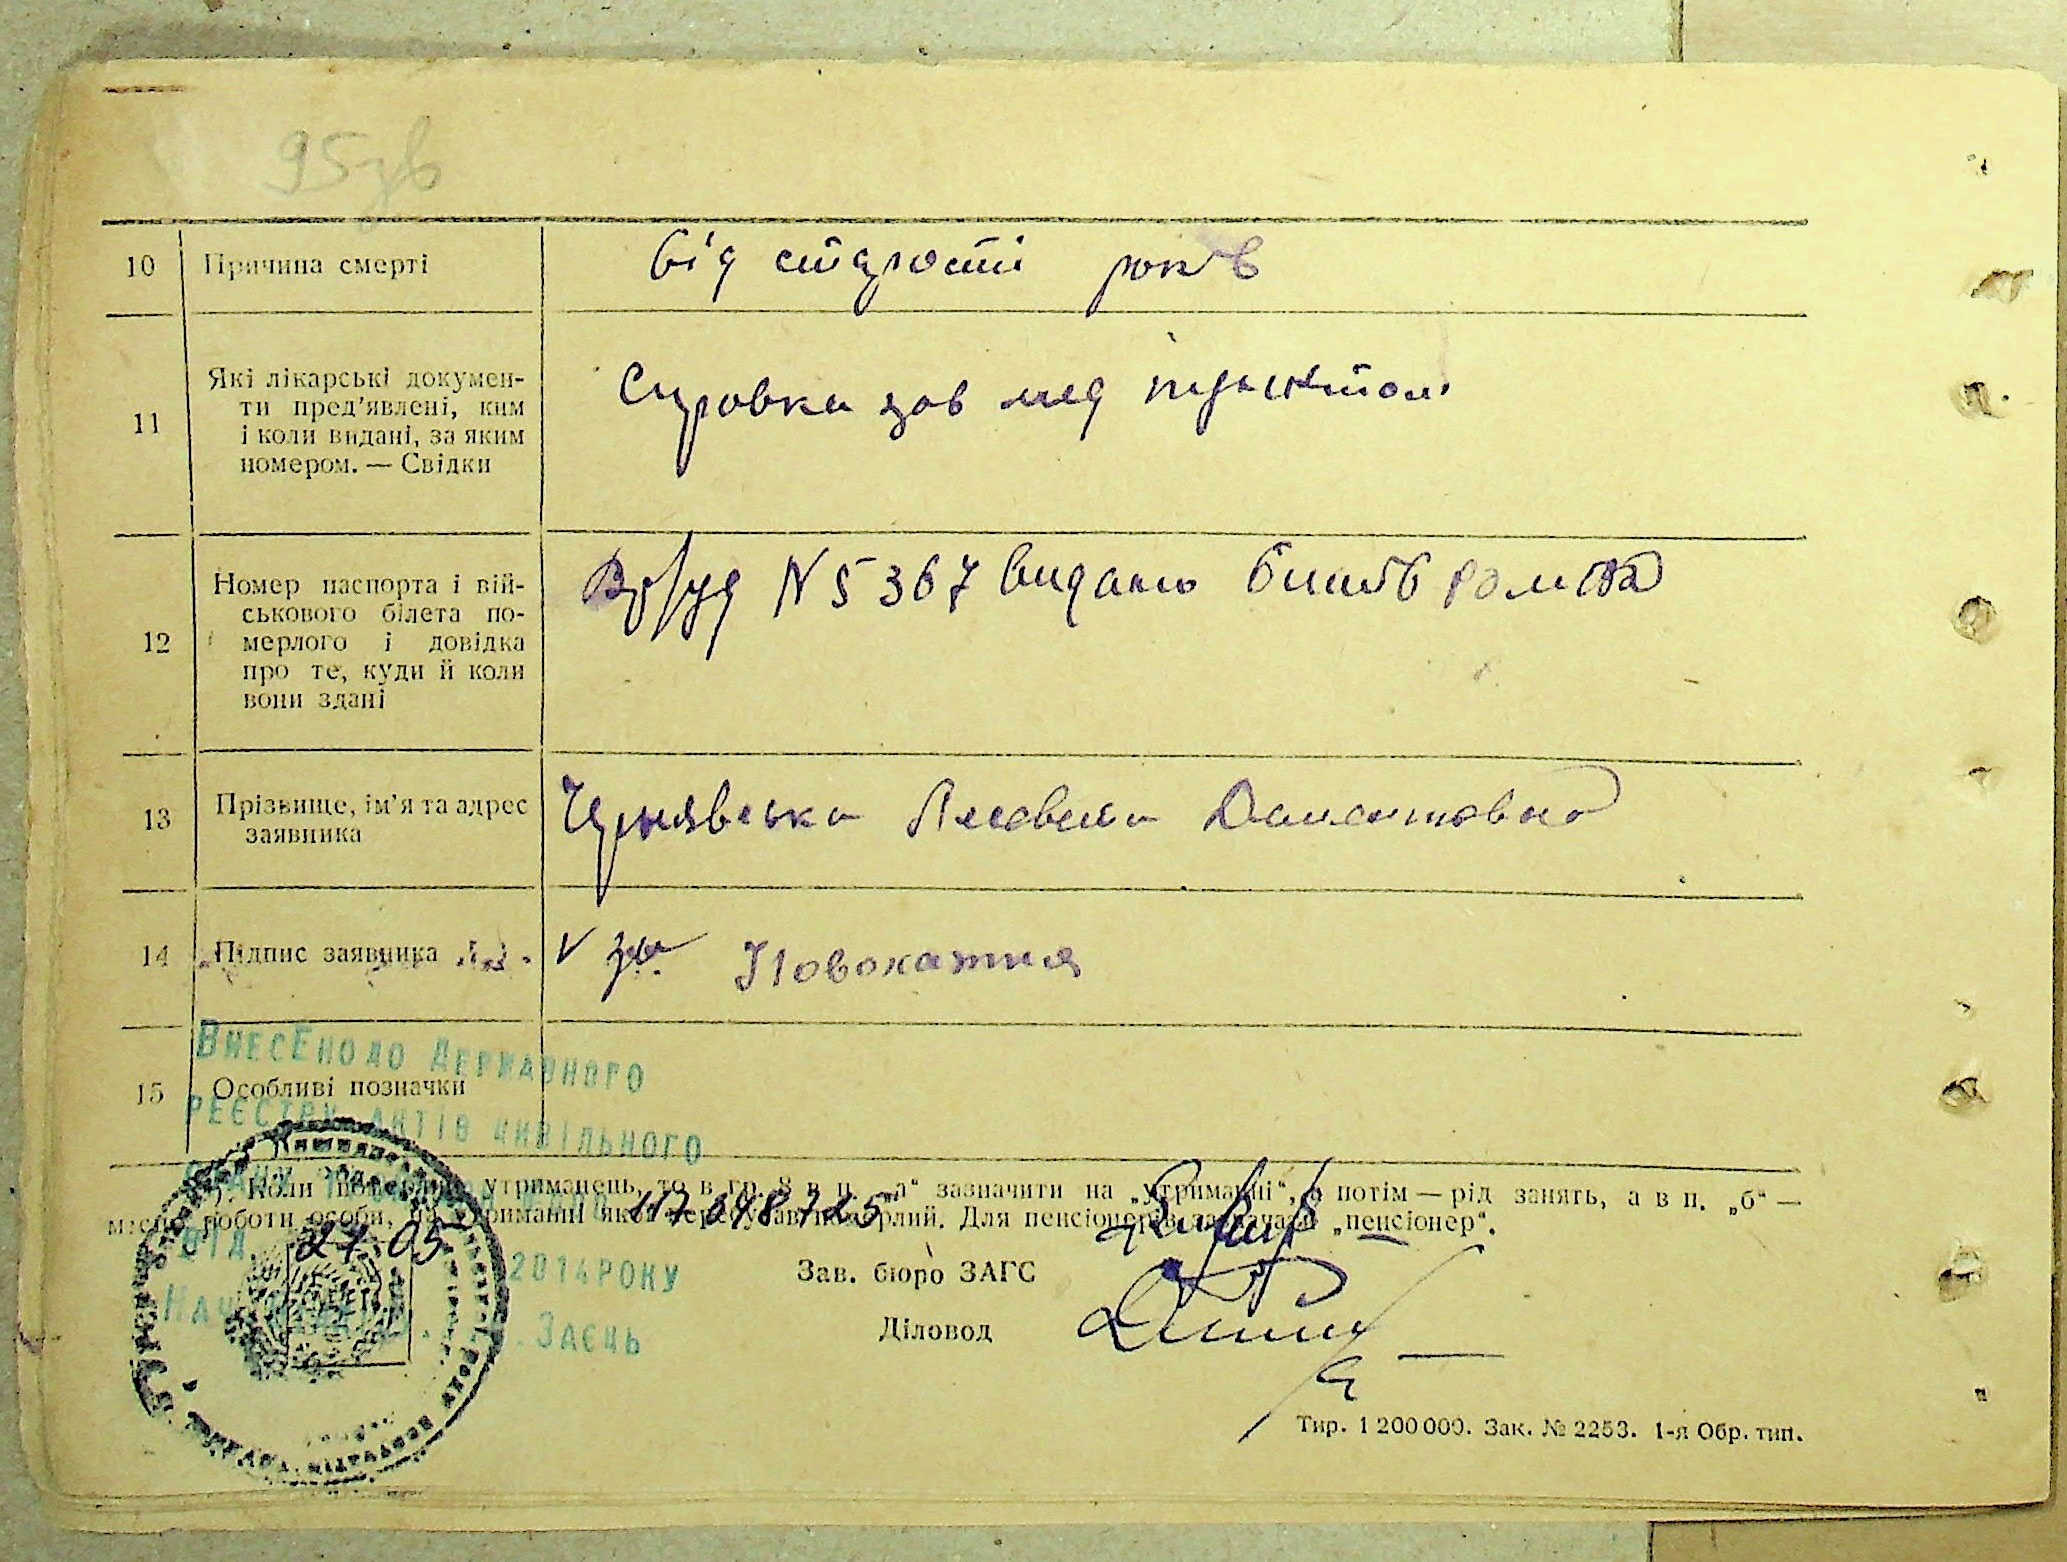 95зв
10 Причина смерті від старости років
11 Які лікарські докумен-
ти пред'явлені, ким
і коли видані, за яким
номером. — Свідки
Справка зав мед пунктом
12 Номер паспорта і вій-
ськового білета по-
мерлого і довідка
про те, куди й коли
вони здані
N 5367 видано
13 Прізвище, ім'я та адрес
заявника
Чернявська
14 Підпис заявника за Новохатня
15 Особливі позначки
Внесено до Державного
реєстру актів цивільного
117048725
від 27.05 2014 року
Заєць
Коли померлий утриманець, то в гр. 8 в п. „а“ зазначити на „утриманні“, а потім — рід занять, а в п. „б“ —
місце роботи особи, на утриманні якої перебував померлий. Для пенсіонерів зазначати „пенсіонер“.
Зав. бюро ЗАГС
Діловод
Тир. 1 200 000. Зак. № 2253. 1-я Обр. тип.